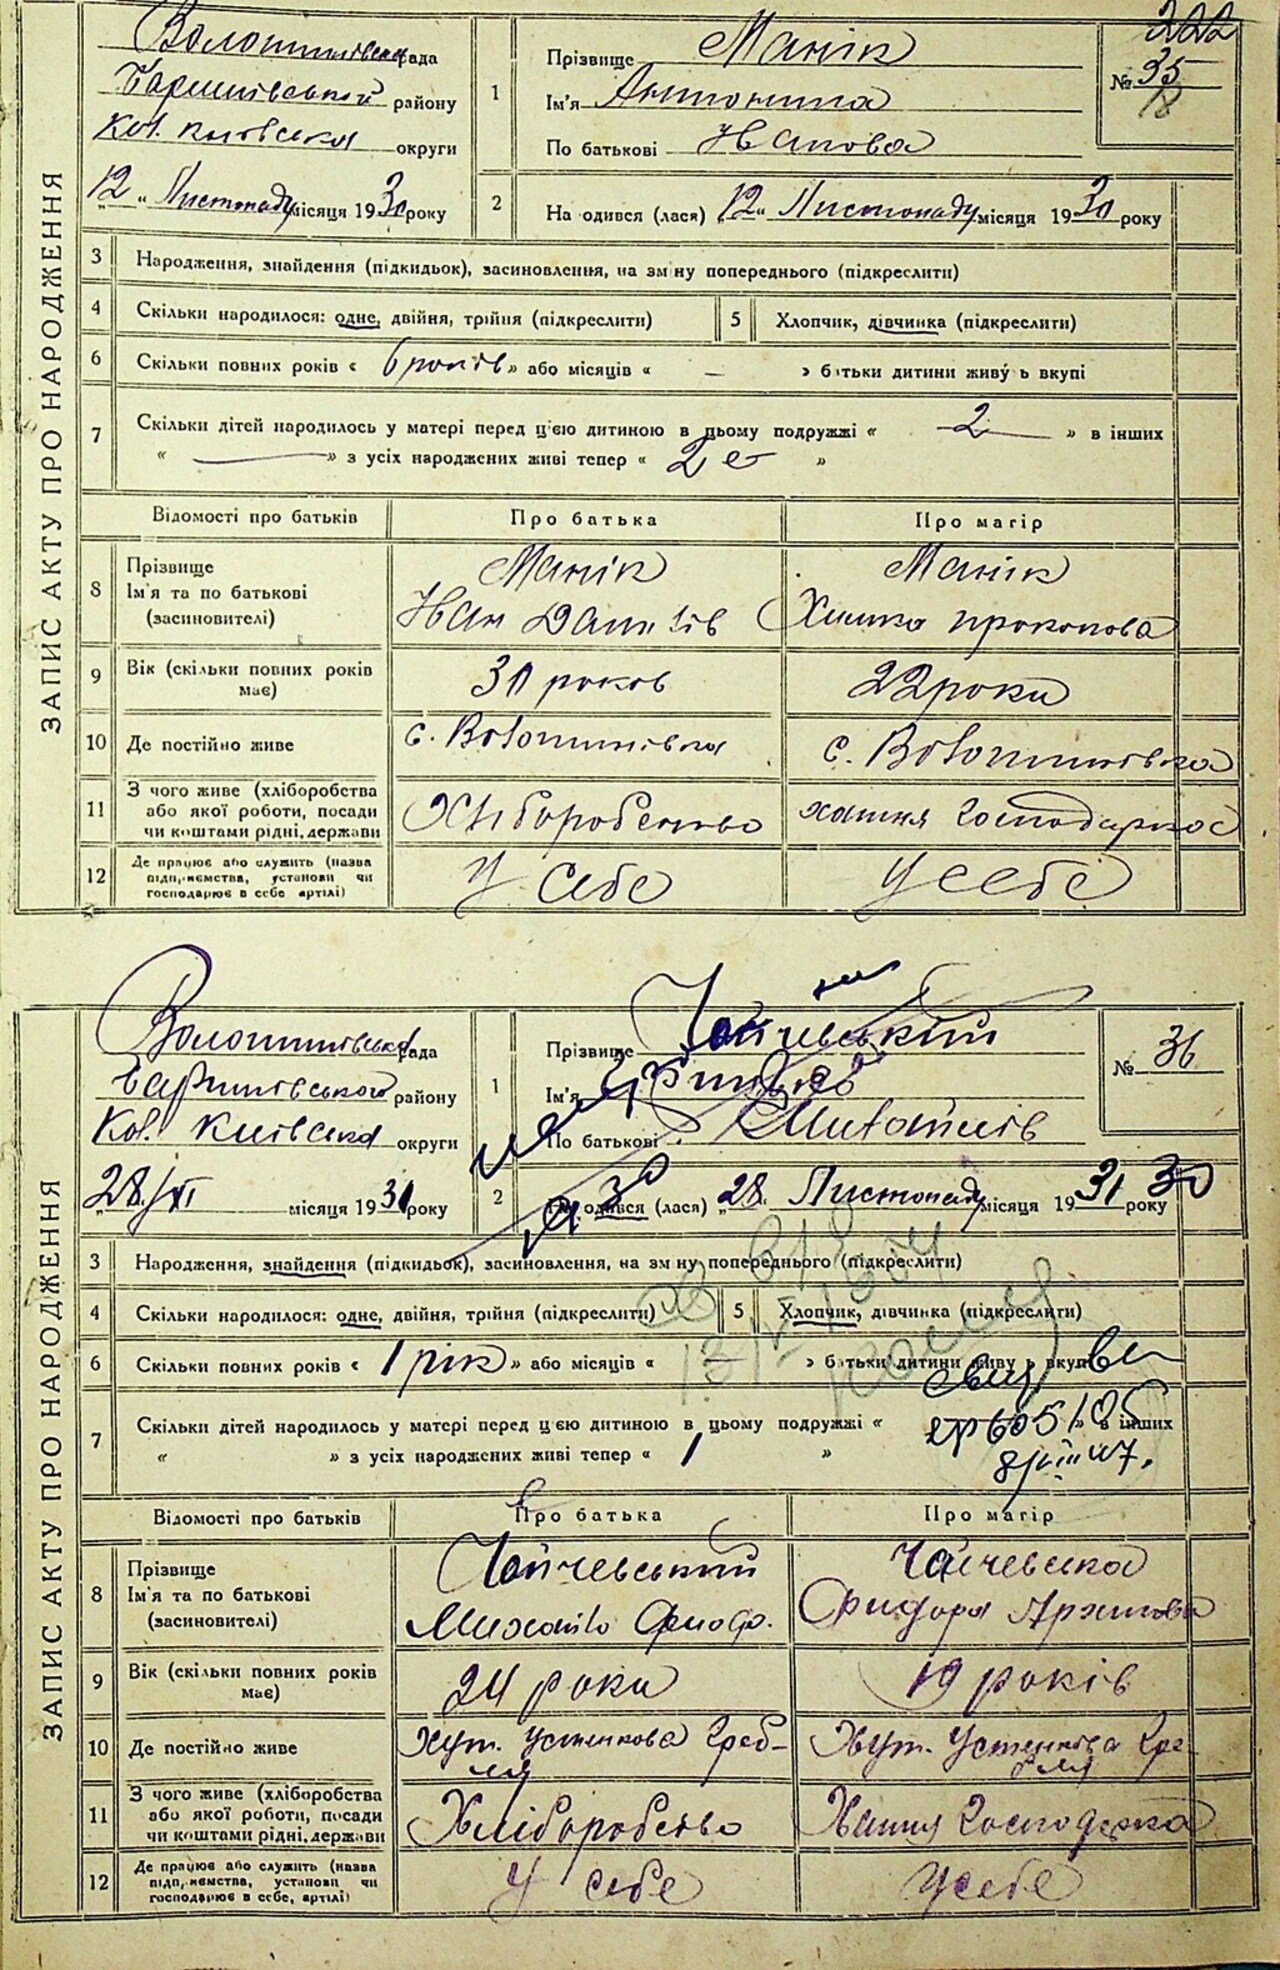 222
Волошинівська рада
Баришівської району
Кол. Київська округи
"12" Листопаду місяця 1930 року
1
Прізвище Манік
Ім'я Антонина
По батькові Іванова
№ 35
18
2
На одився (лася) "12" Листопаду місяця 1930 року
ЗАПИС АКТУ ПРО НАРОДЖЕННЯ
3 Народження, знайдення (підкидьок), засиновлення, на зм ну попереднього (підкреслити)
4 Скільки народилося: одне, двійня, трійня (підкреслити) 5 Хлопчик, дівчинка (підкреслити)
6 Скільки повних років « 6 років » або місяців « — » б тьки дитини живу ь вкупі
7 Скільки дітей народилось у матері перед ц'єю дитиною в цьому подружжі « 2 » в інших
« — » з усіх народжених живі тепер « 2 е »
Відомості про батьків Про батька Про матір
8 Прізвище Манік Манік
Ім'я та по батькові Іван Данилів Химка Прокопова
(засиновителі)
9 Вік (скільки повних років має) 30 років 22 роки
10 Де постійно живе с. Волошинівка с. Волошинівка
11 З чого живе (хліборобства або якої роботи, посади чи коштами рідні, держави Хліборобство хатня господаркос
12 Де працює або служить (назва підприємства, установи чи господарює в себе артілі) У себе У себе
Волошинівська рада
Баришівської району
Кол. Київська округи
"28/XI місяця 1931 року
1
Прізвище Чайчевський
Ім'я
По батькові Михайлів
№ 36
2
одився (лася) "28" Листопаду місяця 1931 року 30
30
ЗАПИС АКТУ ПРО НАРОДЖЕННЯ
3 Народження, знайдення (підкидьок), засиновлення, на зм ну попереднього (підкреслити)
4 Скільки народилося: одне, двійня, трійня (підкреслити) 5 Хлопчик, дівчинка (підкреслити)
6 Скільки повних років « 1 рік » або місяців « — » б тьки дитини живу ь вкупі
7 Скільки дітей народилось у матері перед ц'єю дитиною в цьому подружжі « » в інших
« » з усіх народжених живі тепер « 1 »
Відомості про батьків Про батька Про матір
8 Прізвище Чайчевський Чайчевська
Ім'я та по батькові Михайло Феодр. Фидора Архипова
(засиновителі)
9 Вік (скільки повних років має) 24 роки 19 років
10 Де постійно живе Хут. Устенкова Гребля Хут. Устенкова Гребля
11 З чого живе (хліборобства або якої роботи, посади чи коштами рідні, держави Хліборобство Хатня Господарка
12 Де працює або служить (назва підприємства, установи чи господарює в себе, артілі) У себе У себе